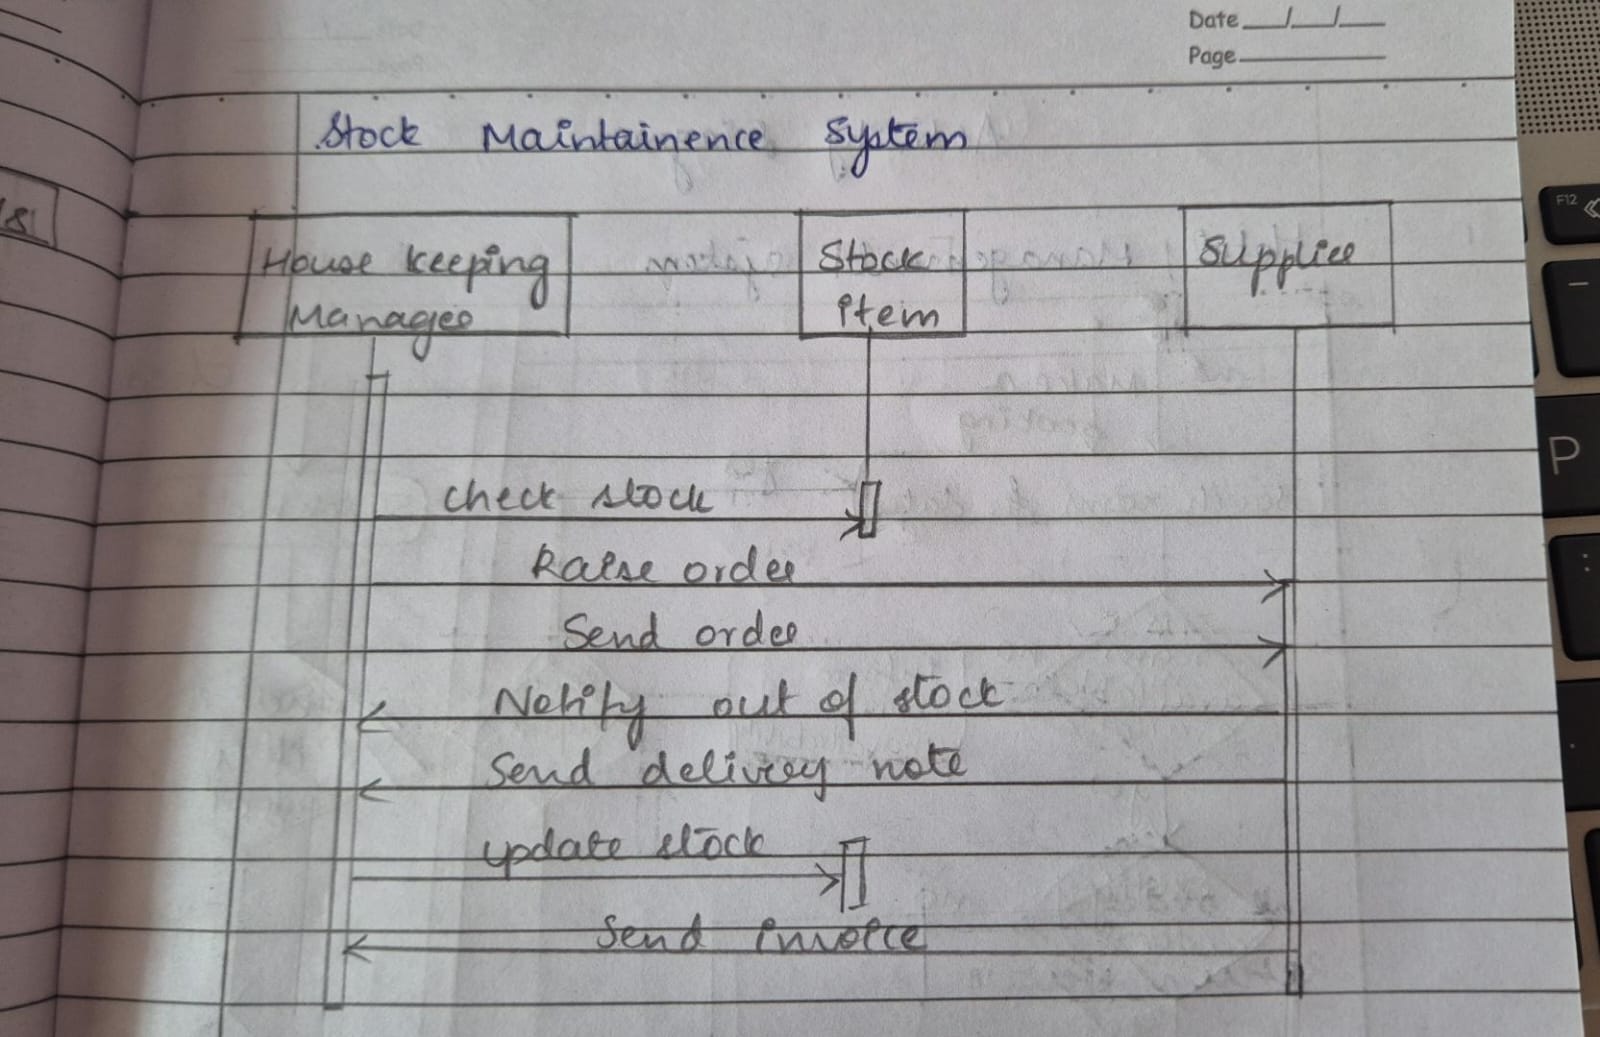 Date __/__/__
Page
Stock Maintainence System
House keeping
Manager
Stock
item
Supplier
check stock
Raise order
Send order
Notify out of stock
Send delivery note
update stock
Send invoice
F12
P